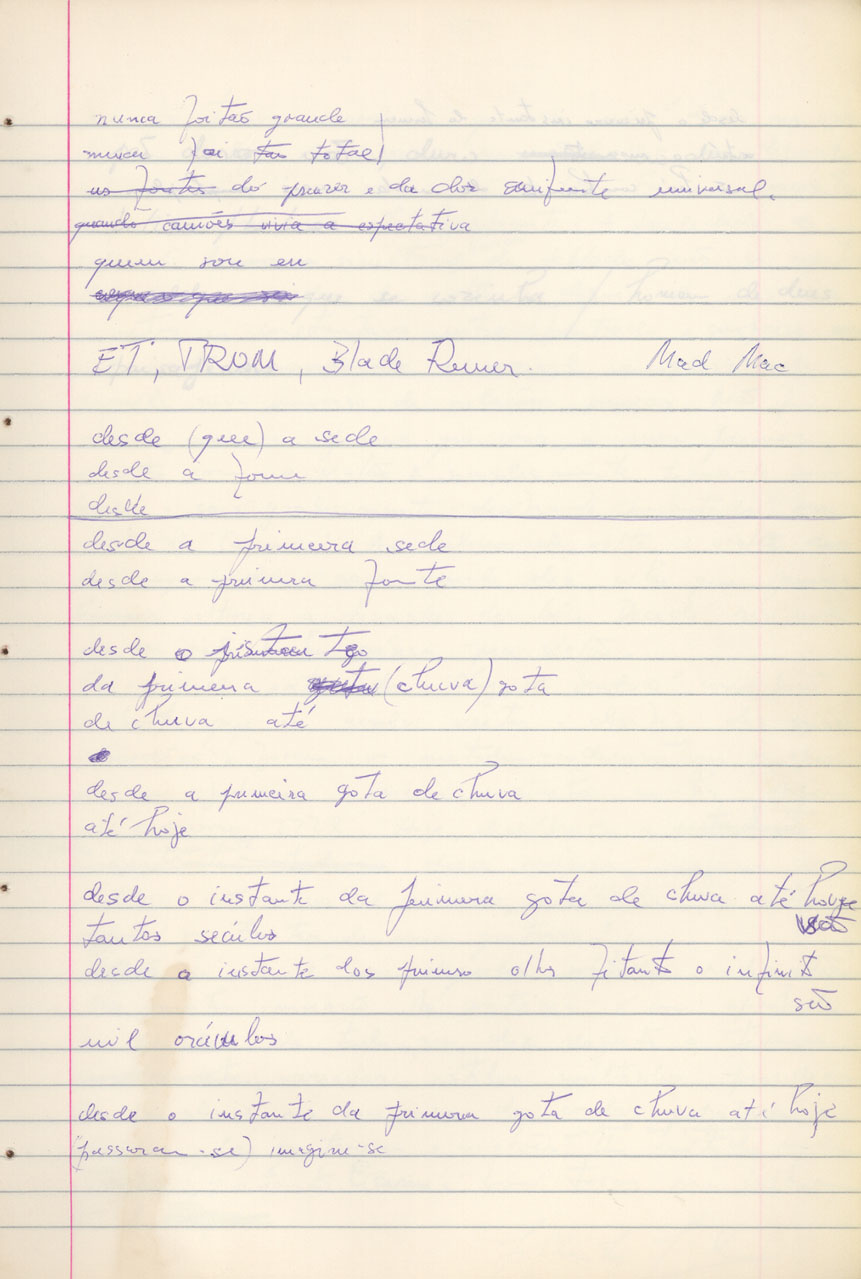 nunca foi tão grande
nunca foi tão total
nas fontes do prazer e da dor universal.
quando camões vivia a expectativa
quem sou eu
ET, TROM, Blade Runer. Mad Mac
desde (que) a sede
desde a fome
desde
desde a primeira sede
desde a primera fonte
desde o
da primeira (chuva) gota
de chuva até
desde a primeira gota de chuva
até hoje
desde o instante da primeira gota de chuva até houve
tantos seculos
desde o instante dos primeiro olhos fitants o infinito
são
mil oráculos
desde o instante da primeira gota de chuva até hoje
(passaram-se) imagine-se